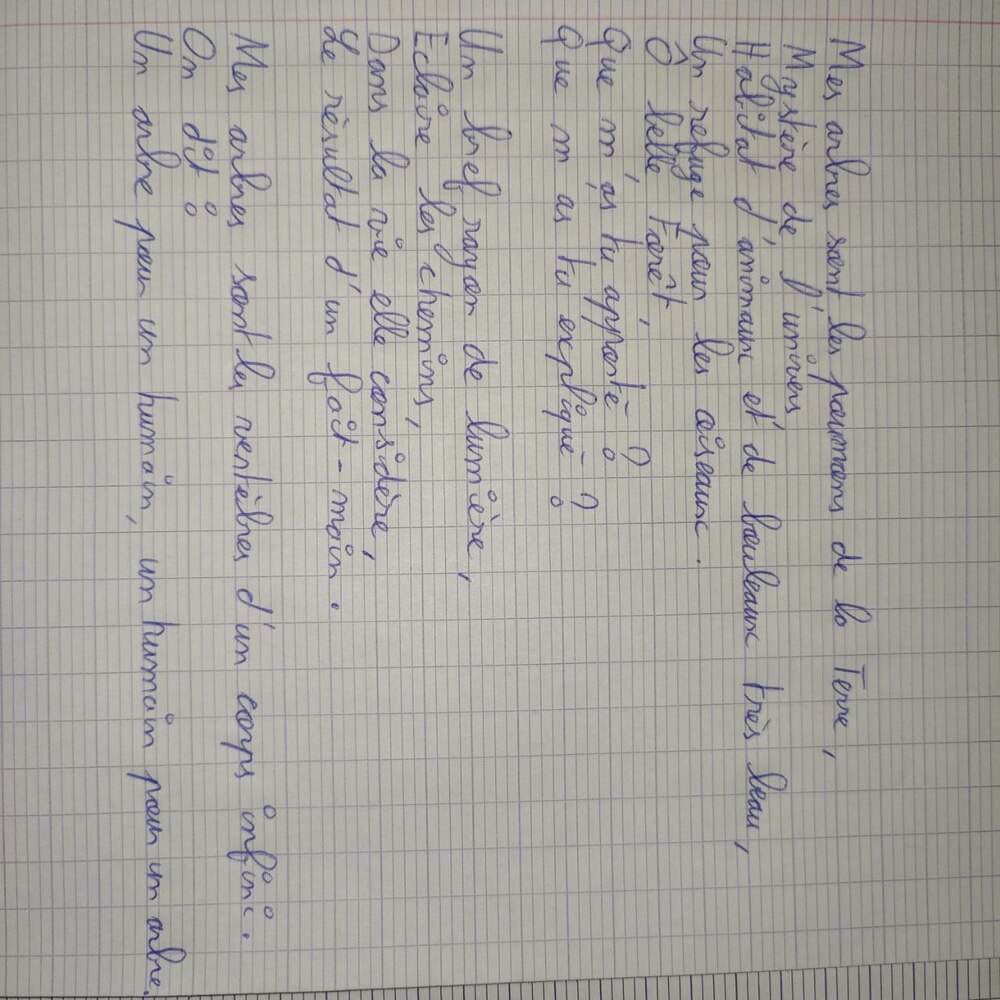 Mes arbres sont les poumons de la Terre,
Mystère de l'univers
Habitat d'animaux et de bouleaux très beau,
Un refuge pour les oiseaux.
Ô belle Forêt,
Que m'as tu apporté ?
Que m'as tu expliqué ?
Un bref rayon de lumière,
Eclaire les chemins,
Dans la vie elle considère,
Le résultat d'un fait-main.
Mes arbres sont les vertèbres d'un corps infini.
On dit :
Un arbre pour un humain, un humain pour un arbre.